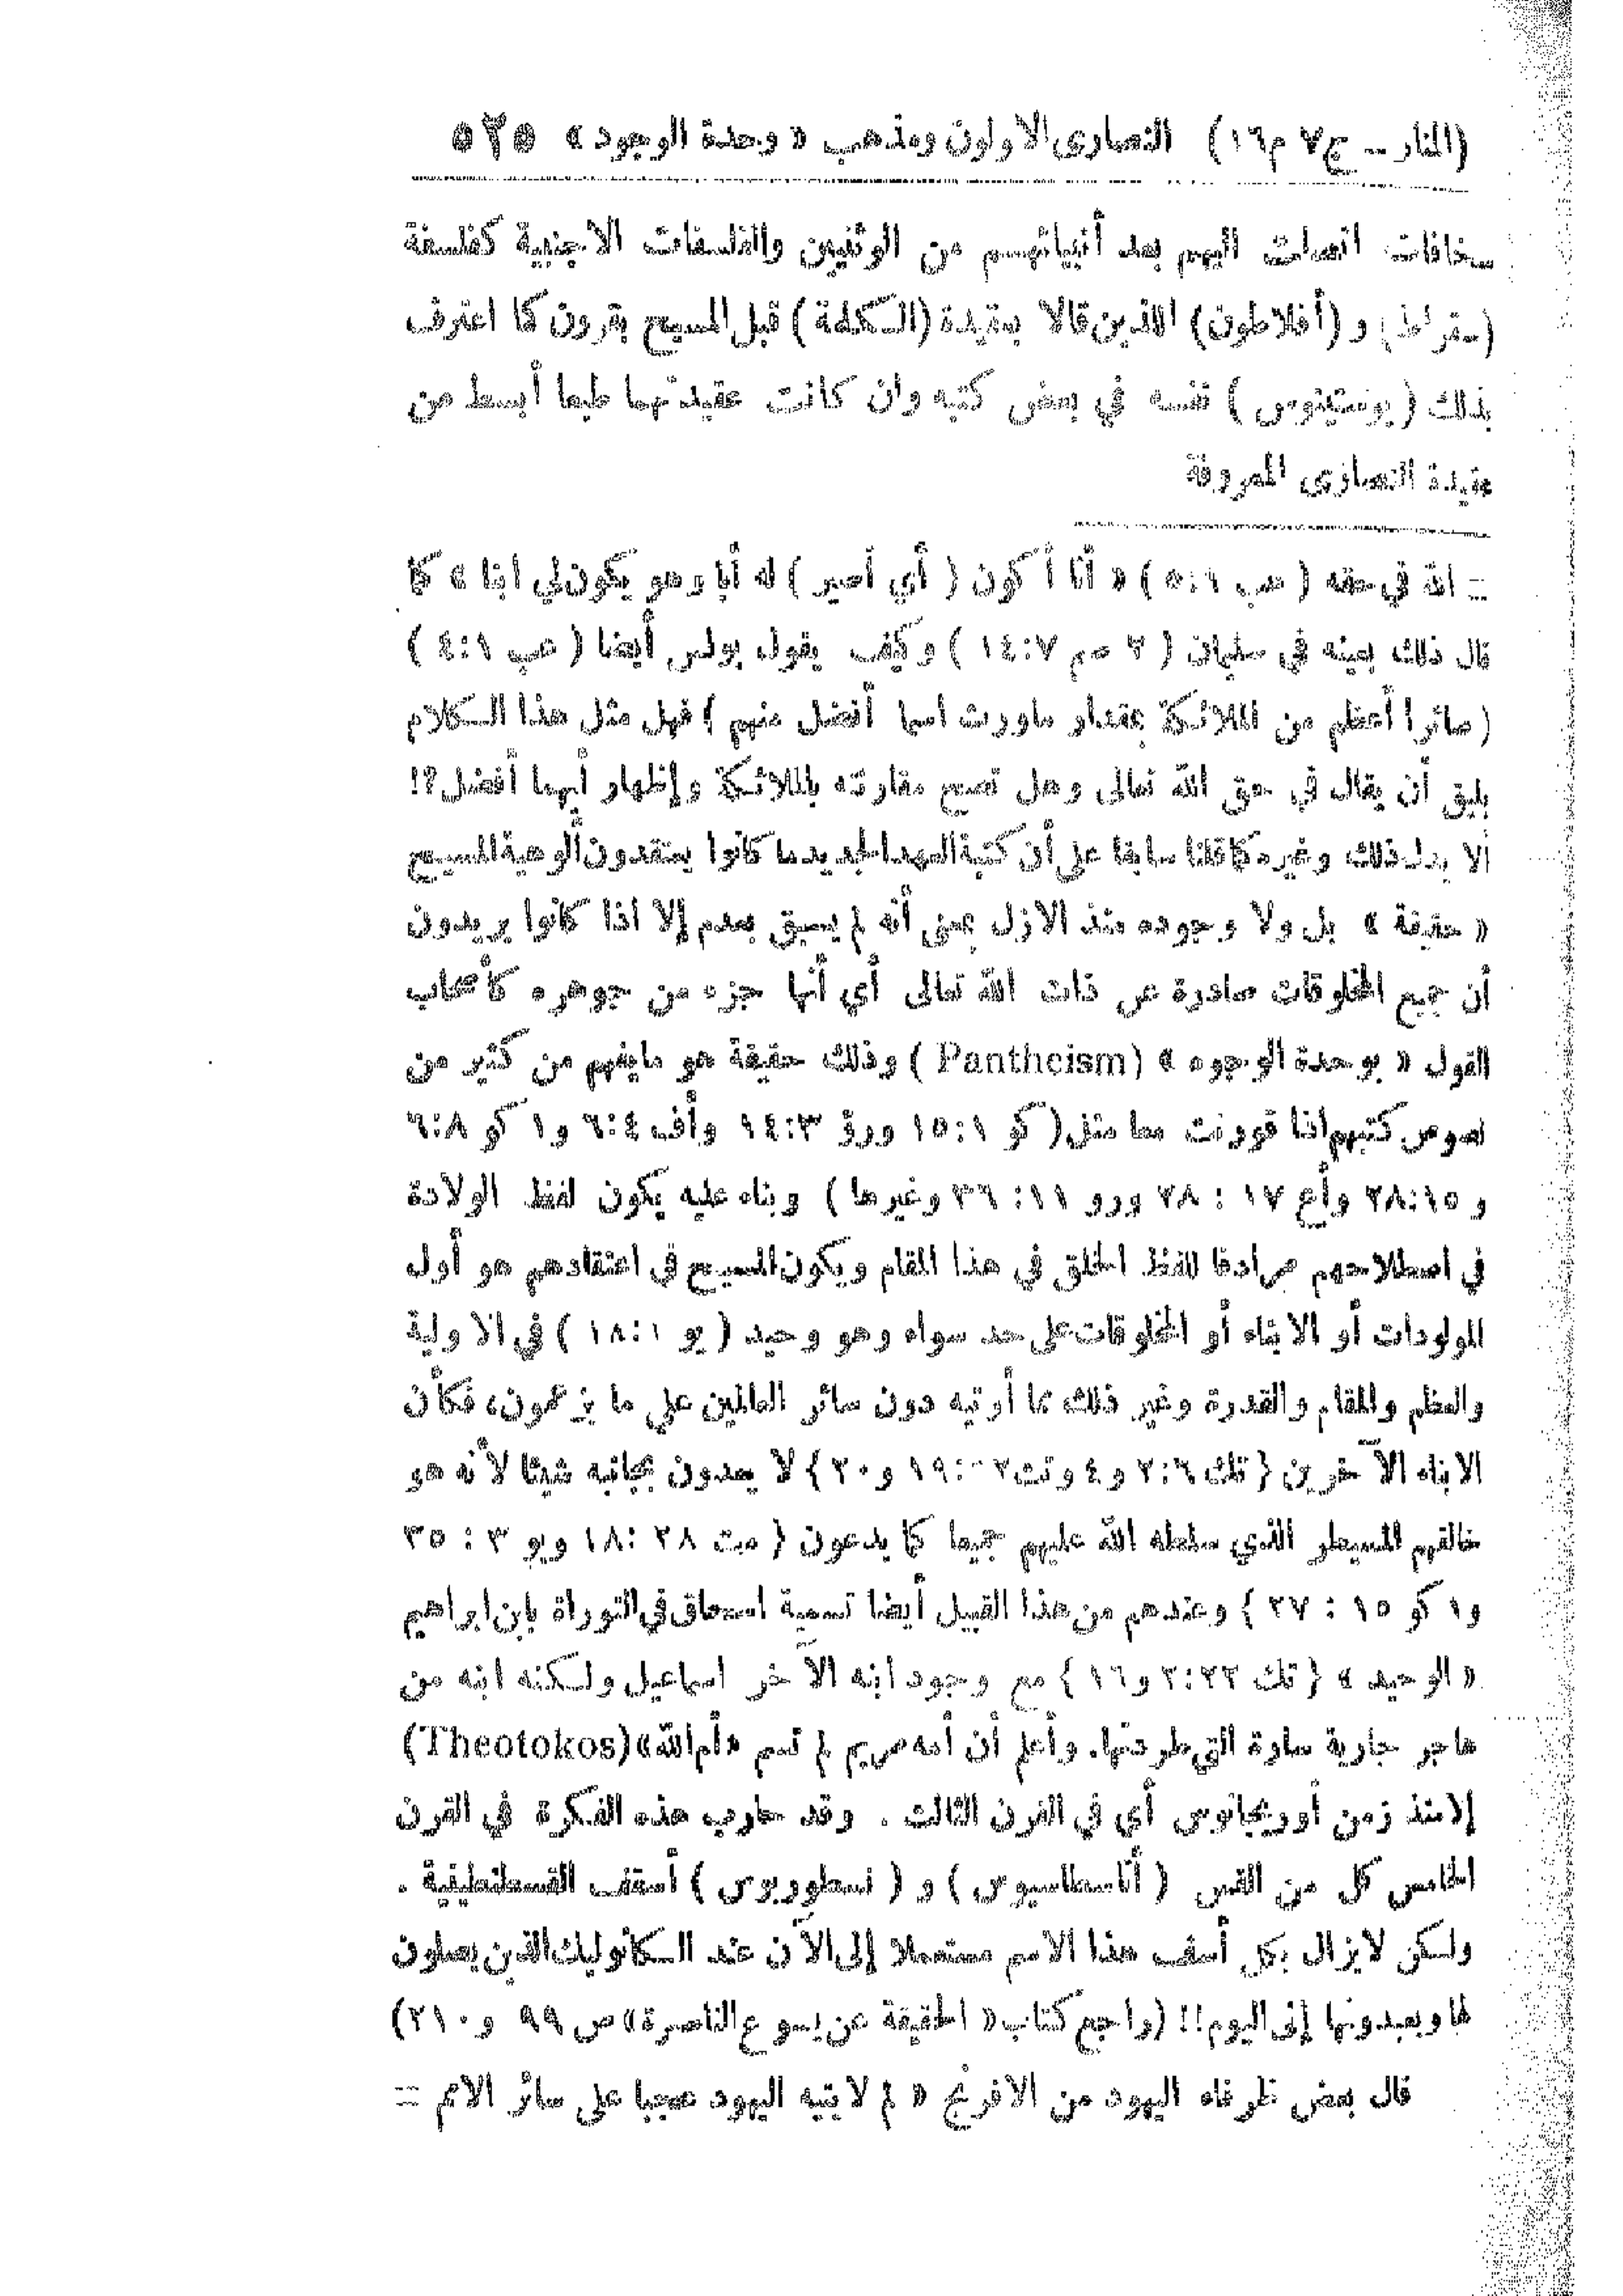 (المنار – ج٧ م١٦) النصارى الاولون ومذهب « وحدة الوجود » ٥٢٥
سخافات اتصلت اليهم بعد أنبيائهم من الوثنيين والفلسفات الاجنبية كفلسفة
(سقراط) و (أفلاطون) اللذين قالا بعقيدة (الكلمة) قبل المسيح بقرون كما اعترف
بذلك (يوستينوس) نفسه في بعض كتبه وان كانت عقيدتهما طبعا أبسط من
عقيدة النصارى المعروفة
= الله في حقه (عب ٥:١) « أنا أكون (أي أصير) له أبا وهو يكون لي ابنا » كما
قال ذلك بعينه في سليمان (٢ صم ١٤:٧) وكيف يقول بولس أيضا (عب ٤:١)
(صائرا أعظم من الملائكة بمقدار ماورث اسما أفضل منهم) فهل مثل هذا الكلام
يليق أن يقال في حق الله تعالى وهل تصح مقارنته بالملائكة وإظهار أيهما أفضل؟!
ألا يدل ذلك وغيره كما قلنا سابقا على أن كتبة العهد الجديد ما كانوا يعتقدون ألوهية المسيح
« حقيقة » بل ولا وجوده منذ الازل بمعنى أنه لم يسبق بعدم إلا اذا كانوا يريدون
أن جميع المخلوقات صادرة عن ذات الله تعالى أي أنها جزء من جوهره كأصحاب
القول « بوحدة الوجود » (Pantheism) وذلك حقيقة هو مايفهم من كثير من
نصوص كتبهم اذا قورنت معا مثل (كو ١٥:١ ورؤ ١٤:٣ وأف ٦:٤ و١ كو ٦:٨
و ٢٨:١٥ وأع ١٧ : ٢٨ ورو ١١: ٣٦ وغيرها) وبناء عليه يكون لفظ الولادة
في اصطلاحهم مرادفا للفظ الخلق في هذا المقام ويكون المسيح في اعتقادهم هو أول
المولودات أو الابناء أو المخلوقات على حد سواء وهو وحيد (يو ١٨:١) في الاولية
والعظم والمقام والقدرة وغير ذلك مما أوتيه دون سائر العالمين على ما يزعمون، فكأن
الابناء الآخرين (تك ٢:٦ و٤ وتث ١٩: و٢٠) لا يعدون بجانبه شيئا لأنه هو
خالقهم المسيطر الذي سلطه الله عليهم جميعا كما يدعون (مت ٢٨ :١٨ ويو ٣ : ٣٥
و١ كو ١٥ : ٢٧) وعندهم من هذا القبيل أيضا تسمية اسحاق في التوراة بابن ابراهيم
« الوحيد » (تك ٢:٢٢ و١٦) مع وجود ابنه الآخر اسماعيل ولكنه ابنه من
هاجر جارية سارة التي طردتها. وأعلم أن أمه مريم لم تسم «أم الله» (Theotokos)
إلا منذ زمن أوريجانوس أي في القرن الثالث . وقد حارب هذه الفكرة في القرن
الخامس كل من القس (أناسطاسيوس) و (نسطوريوس) أسقف القسطنطينية .
ولكن لايزال بكل أسف هذا الاسم مستعملا إلى الآن عند الكاثوليك الذين يصلون
لها ويعبدونها إلى اليوم!! (راجع كتاب « الحقيقة عن يسوع الناصرة » ص ٩٩ و ٢١٠)
قال بعض ظرفاء اليهود من الافرنج « لم لا يتيه اليهود عجبا على سائر الامم =